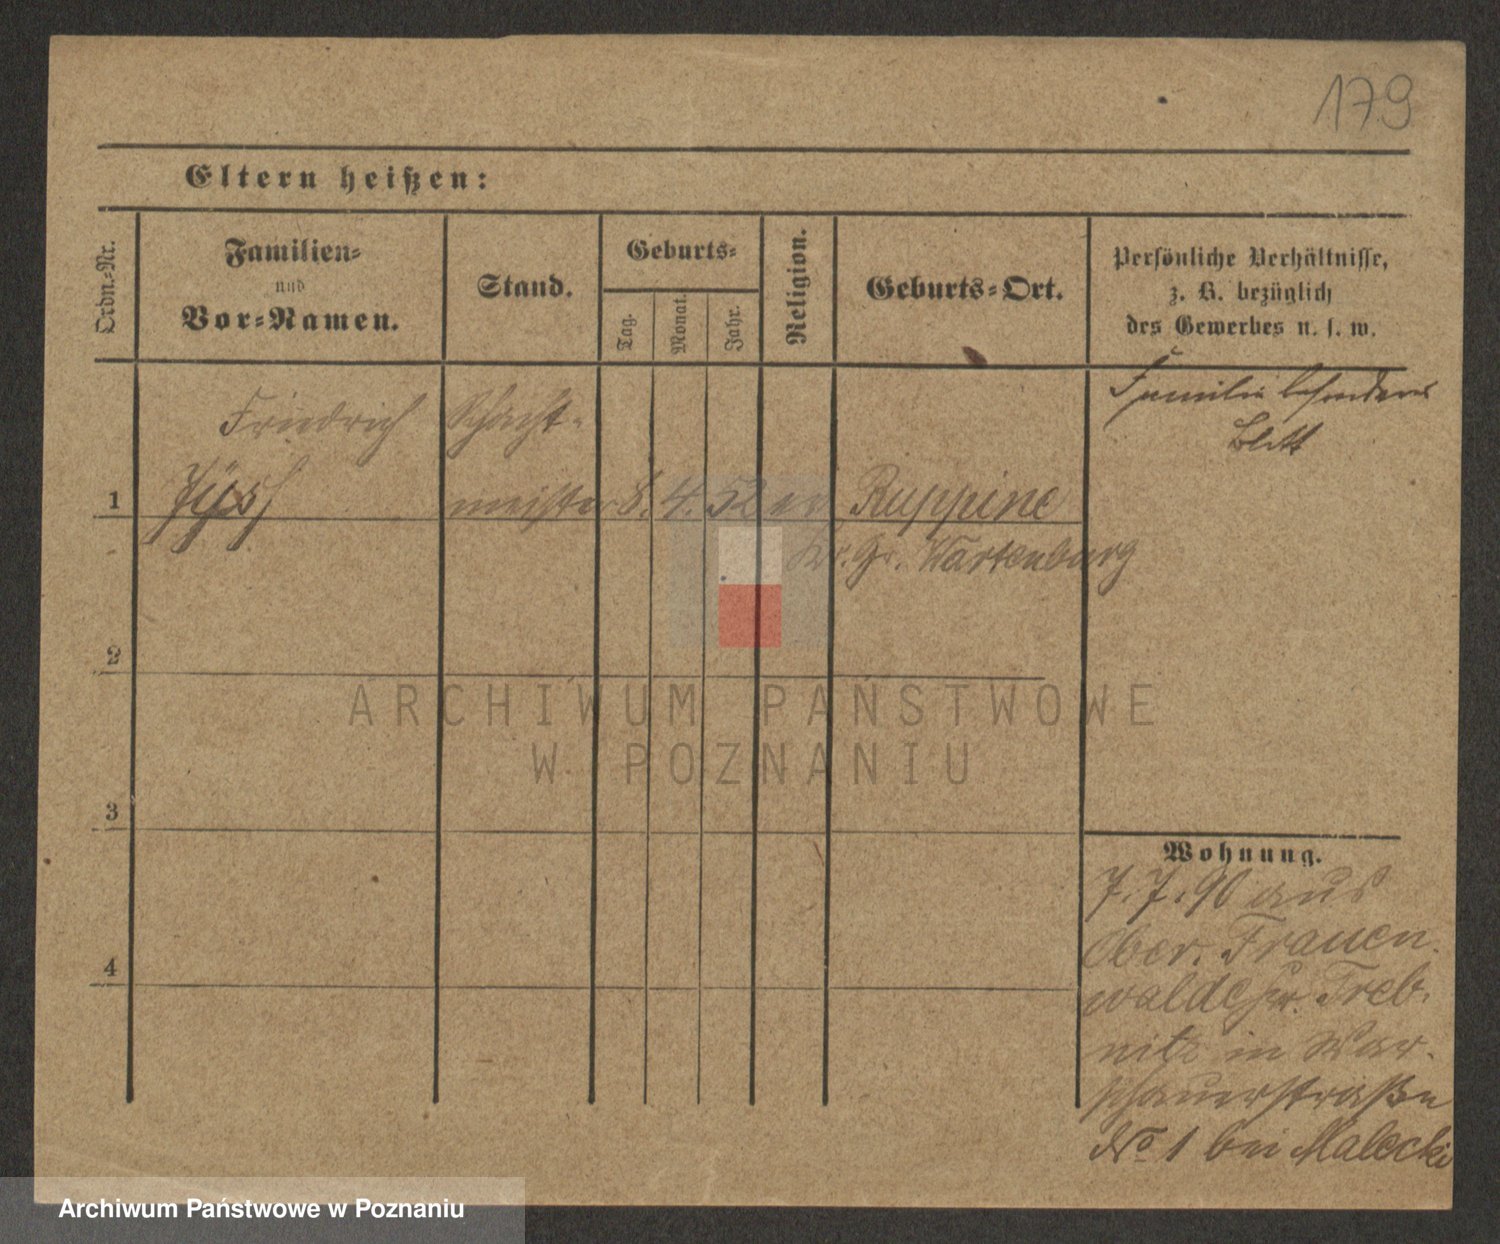 179
Eltern heißen:
Ordn.-Nr.
Familien-
und
Vor-Namen.
Stand.
Geburts-
Tag.
Monat.
Jahr.
Religion.
Geburts-Ort.
Persönliche Verhältnisse,
z. B. bezüglich
des Gewerbes u. s. w.
Friedrich Schacht-
1 meister 8. 4. 52 ev Ruppine
Kr. Gr. Wartenburg
Familie besonderes
Blatt
2
3
4
Wohnung.
7. 7. 90 aus
Ober. Frauen.
walde Kr. Treb.
nitz in War.
schauerstraße
No 1 bei Malecki
ARCHIWUM PAŃSTWOWE
W POZNANIU
Archiwum Państwowe w Poznaniu